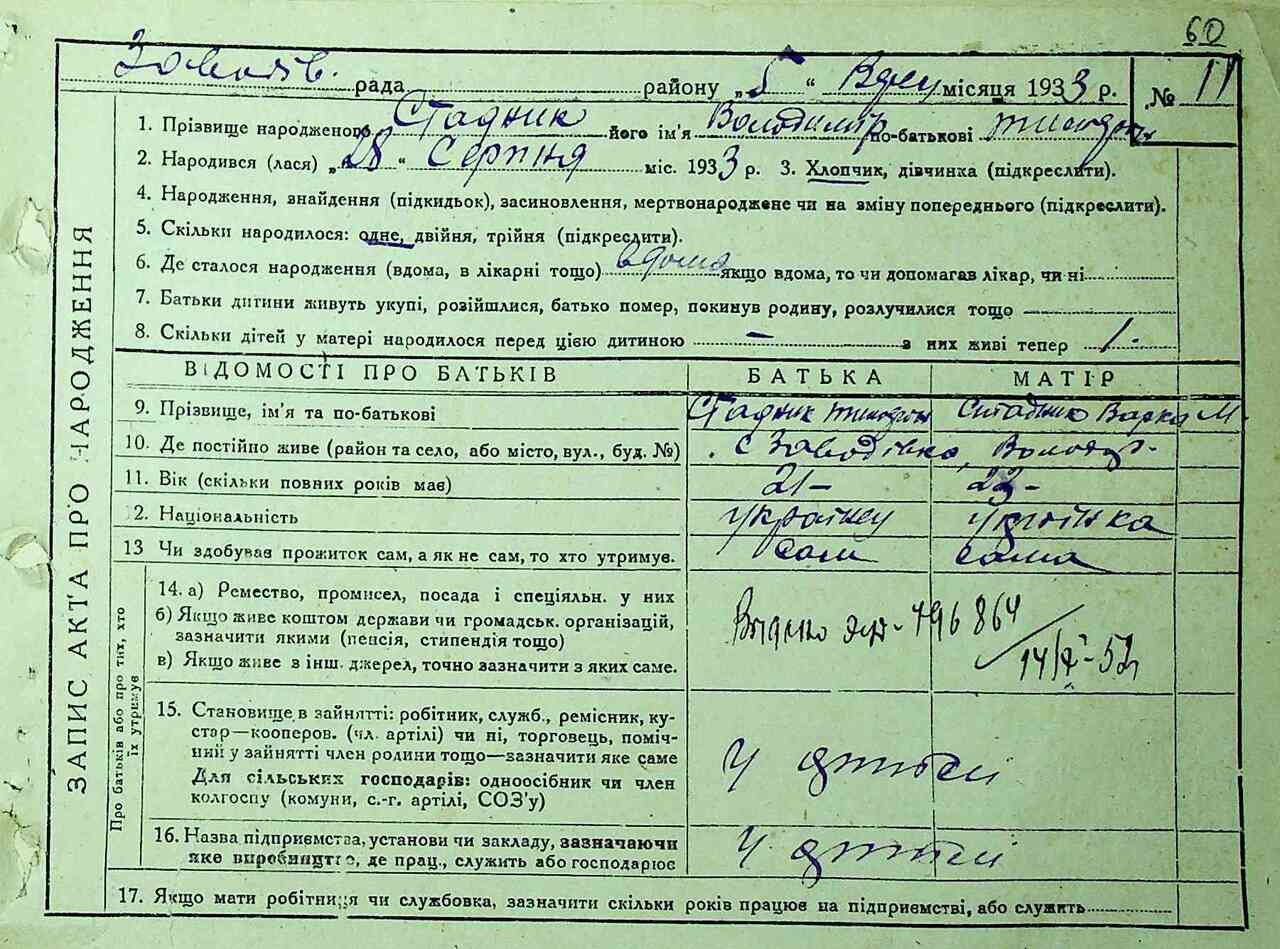 60
рада районy „5“ Вдху місяця 1933 р. № 11
ЗАПИС АКТА ПРО НАРОДЖЕННЯ
1. Прізвище народженого Стадник його ім'я Володимір по-батькові
2. Народився (лася) „28“ Серпня міс. 1933 р. 3. Хлопчик, дівчинка (підкреслити).
4. Народження, знайдення (підкидьок), засиновлення, мертвонароджене чи на зміну попереднього (підкреслити).
5. Скільки народилося: одне, двійня, трійня (підкреслити).
6. Де сталося народження (вдома, в лікарні тощо) вдома якщо вдома, то чи допомагав лікар, чи ні
7. Батьки дитини живуть укупі, розійшлися, батько помер, покинув родину, розлучилися тощо
8. Скільки дітей у матері народилося перед цією дитиною — з них живі тепер 1-
ВІДОМОСТІ ПРО БАТЬКІВ БАТЬКА МАТІР
9. Прізвище, ім'я та по-батькові Стадник Стадник Варка М.
10. Де постійно живе (район та село, або місто, вул., буд. №) с Заводівка,
11. Вік (скільки повних років має) 21- 23-
2. Національність українец українка
13 Чи здобував прожиток сам, а як не сам, то хто утримув. сам сама
Про батьків або про тих, хто
їх утримує
14. а) Ремество, промисел, посада і спеціяльн. у них
б) Якщо живе коштом держави чи громадськ. організацій,
зазначити якими (пенсія, стипендія тощо)
в) Якщо живе з інш. джерел, точно зазначити з яких саме.
796864
15. Становище в зайнятті: робітник, служб., ремісник, ку-
стар—кооперов. (чл. артілі) чи ні, торговець, поміч-
ний у зайнятті член родини тощо—зазначити яке саме
Для сільських господарів: одноосібник чи член
колгоспу (комуни, с.-г. артілі, СОЗ'у)
У артілі
16. Назва підприємства, установи чи закладу, зазначаючи
яке виробництво, де прац., служить або господарює
У артілі
17. Якщо мати робітниця чи службовка, зазначити скільки років працює на підприємстві, або служить